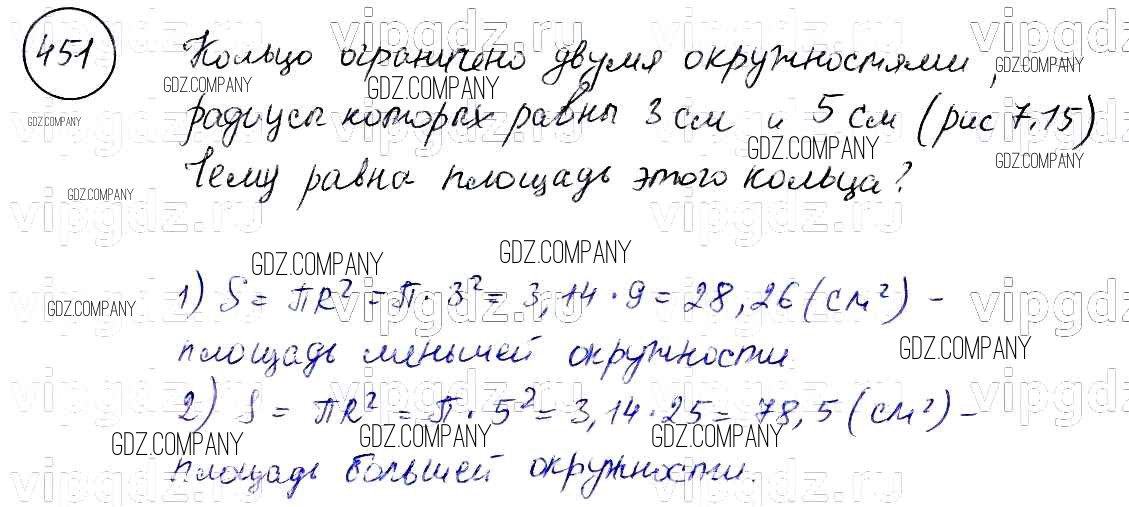 451
Кольцо ограничено двумя окружностями,
радиусы которых равны 3 см и 5 см (рис 7.15)
Чему равна площадь этого кольца?
1) S = πR² = π · 3² = 3,14 · 9 = 28,26 (см²) –
площадь меньшей окружности
2) S = πR² = π · 5² = 3,14 · 25 = 78,5 (см²) –
площадь большей окружности.